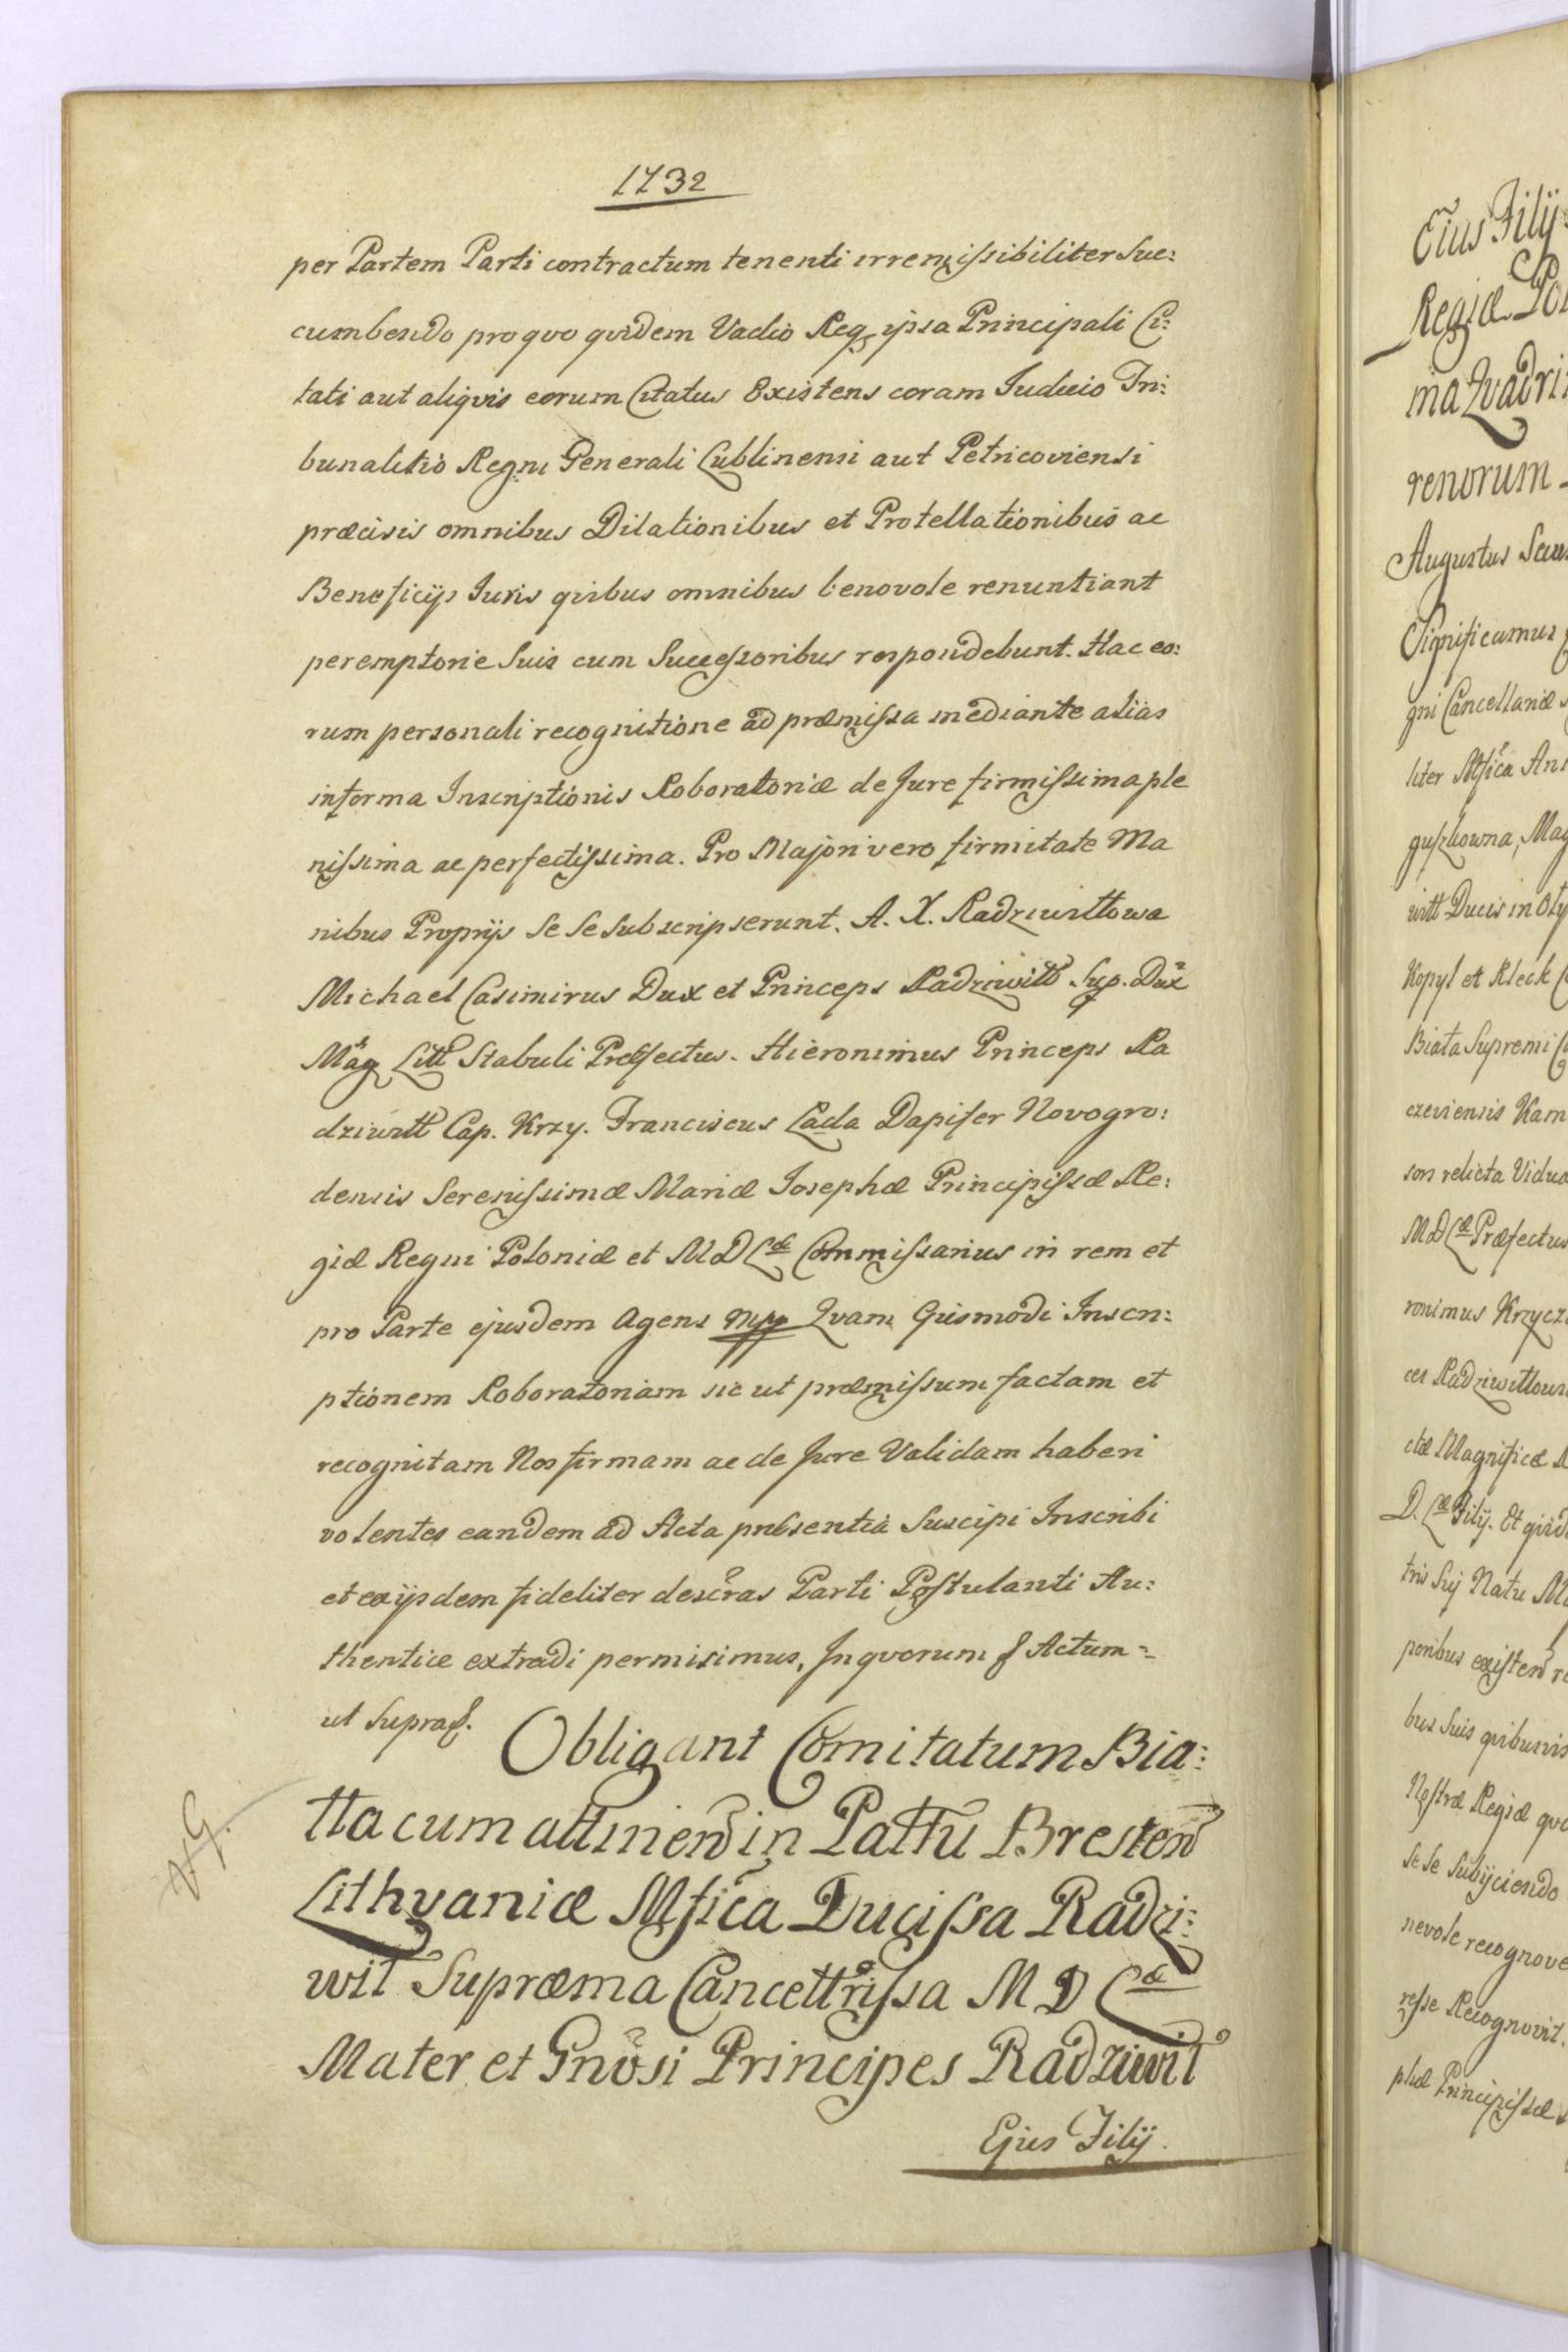 1732
per Partem Parti contractum tenenti irremissibiliter Suc:
cumbendo pro quo quidem Vadio Req ipsa Principali Ci:
tati aut aliquis eorum Citatus Existens coram Judicio Tri:
bunalitio Regni Generali Lublinensi aut Petricoviensi
præcisis omnibus Dilationibus et Protellationibus ac
Beneficijs Juris quibus omnibus benovole renuntiant
peremptorie Suis cum Successoribus respondebunt. Hac eo:
rum personali recognitione ad præmissa mediante alias
in forma Inscriptionis Roboratoriæ de Jure firmissima ple
nissima ac perfectissima. Pro Majori vero firmitate Ma
nibus Proprijs Se Se Subscripserunt. A. X. Radziwiłłowa
Michael Casimirus Dux et Princeps Radziwiłł Sup. Dux
Mag Litt Stabuli Præfectus. Hieronimus Princeps Ra
dziwiłł Cap. Krzy. Franciscus Łada Dapifer Novogro:
densis Serenissimæ Mariæ Josephæ Principissæ Re:
giæ Regni Poloniæ et M D Læ Commissarius in rem et
pro Parte ejusdem Agens mpp Quam Ejusmodi Inscri:
ptionem Roboratoriam sic ut præmissum factam et
recognitam Nos firmam ac de Jure Validam haberi
volentes eandem ad Acta præsentia Suscipi Inscribi
et ex ijsdem fideliter descras Parti Postulanti Au:
thentice extradi permisimus, In quorum f Actum
ut Supra f.
Obligant Comitatum Bia:
łła cum attinen in Pałłu Bresten
Lithvaniæ Mfica Ducissa Radzi:
wił Supræma Cancellrissa M D Læ
Mater et Gnosi Principes Radziwił
Ejus Filij.
Ejus Filij
Regiæ
renorum
Augustus
Significamus
gni Cancellariæ
liter Mfica
guszkowna,
wiłł Ducis in
Kopyl et Kleck
Biała Supremi
czeviensis
relicta
M D Læ Præfectus
ronimus
Magnificæ
D. Læ Filij. Et
tris Sui Natu
existen
bus Suis quibusvis
Nostræ Regiæ
Se Se Subijciendo
nevole
Recognovit.
phæ Principissæ